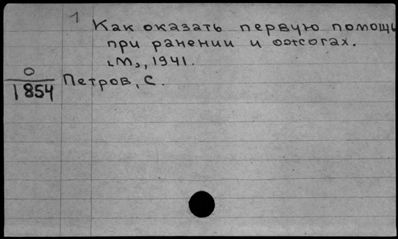 1
Как оказать первую помощь
при ранении и ожогах.
М., 1941.
О
1854
Петров, С.